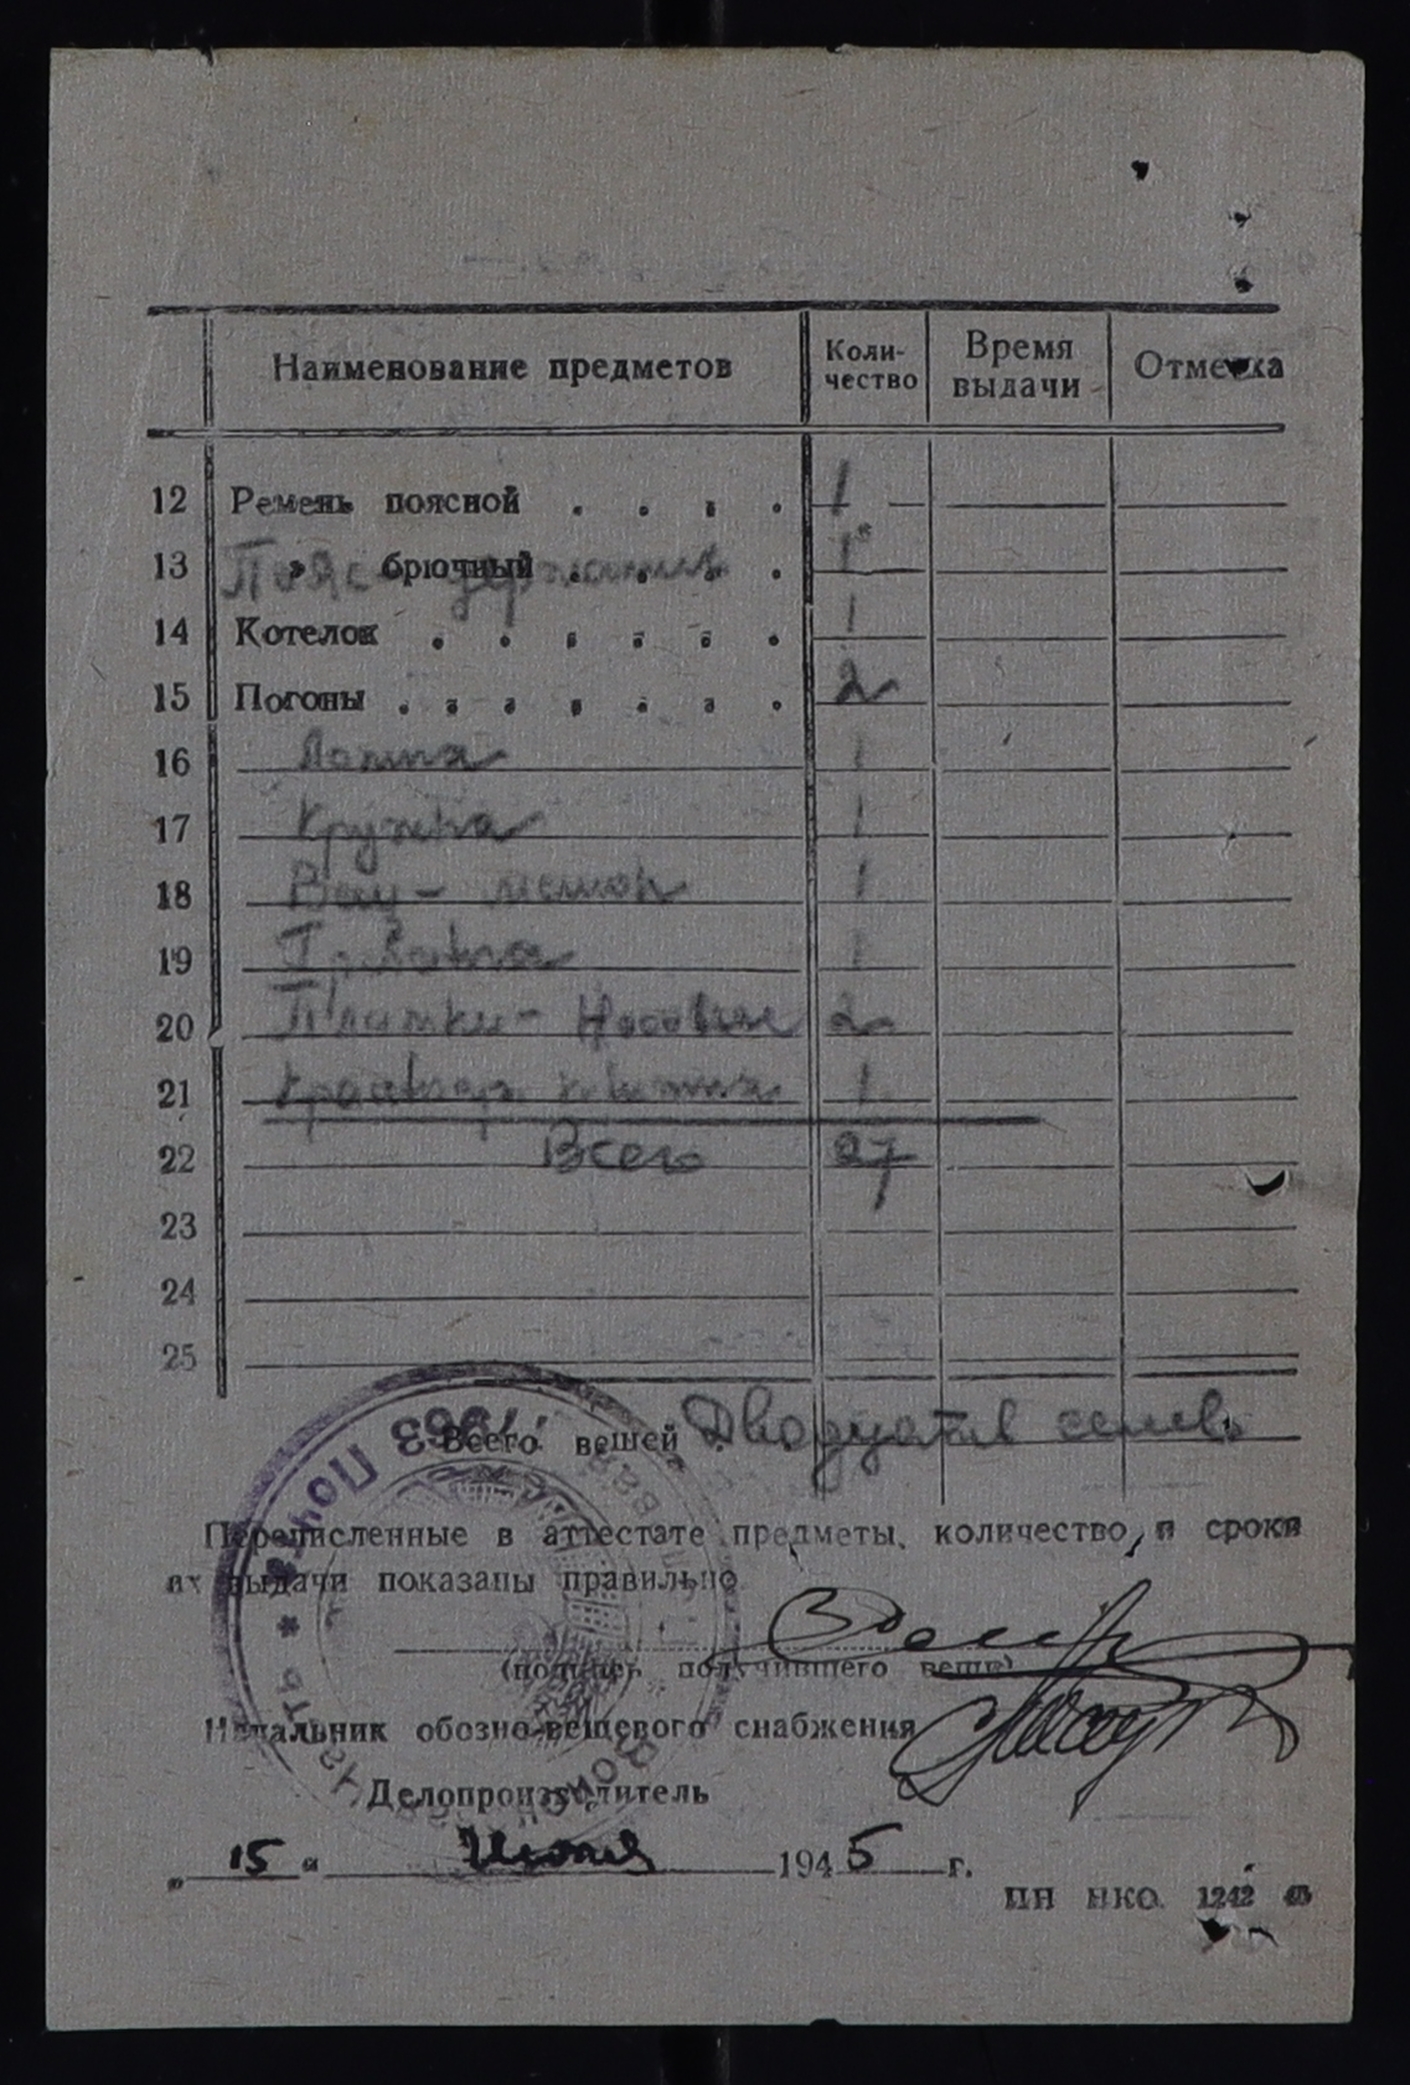 Наименование предметов Коли-чество Время выдачи Отметка
12 Ремень поясной . . . . 1
13 Пояс » брючный . . . . 1
14 Котелок . . . . . . 1
15 Погоны . . . . . . . 2
16 1
17 Кружка 1
18 Вещ-мешок 1
19 1
20 Платки-Носовые 2
21 1
22 Всего 27
23
24
25
Всего вещей . Двадцать семь
Перечисленные в аттестате предметы, количество и сроки
их выдачи показаны правильно
(подпись получившего вещи)
Начальник обозно-вещевого снабжения
Делопроизводитель
„ 15 “ 1945 г.
ПН НКО 1242